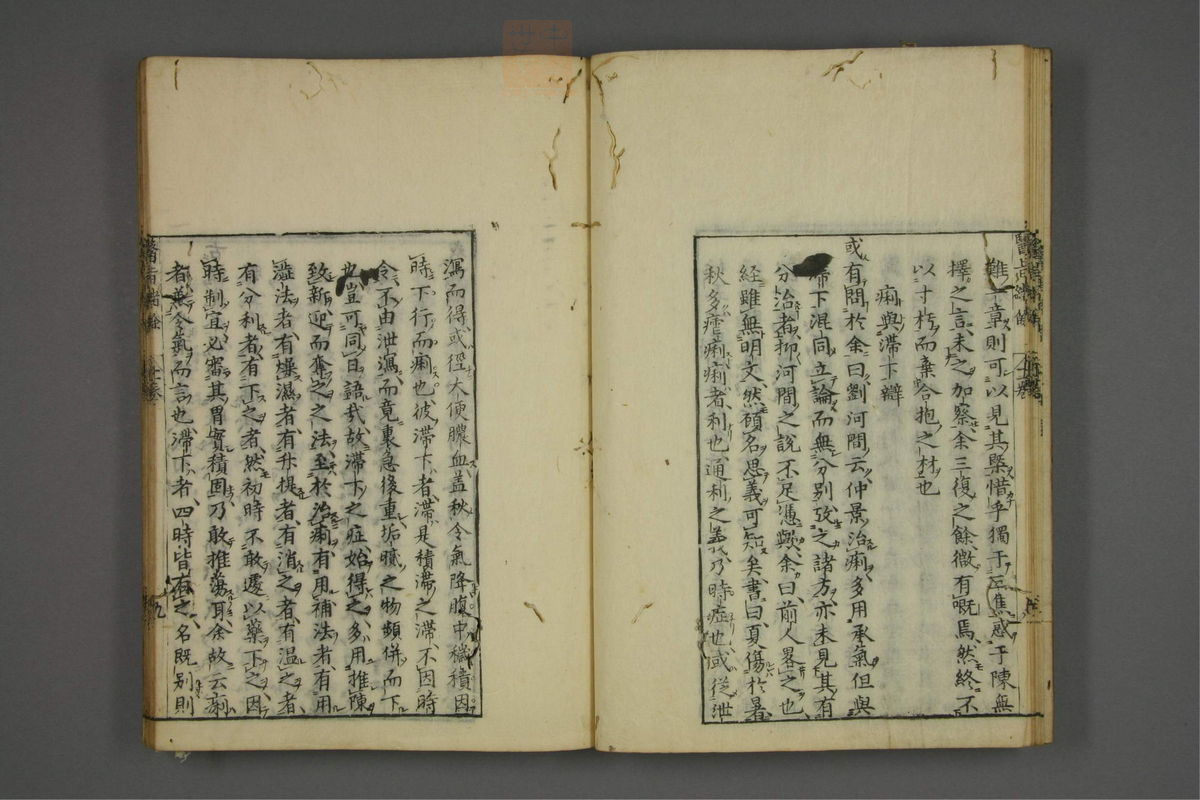 難一章則可以見其槩惜乎獨于三焦惑于陳無
擇之言未之加察余三復之餘微有嘅焉然終不
以寸朽而棄合抱之材也
痢與滯下辯
或有問於余曰劉河間云仲景治痢多用承氣但與
滯下混同立論而無分别攷之諸方亦未見其有
分治者抑河間之說不足憑與余曰前人畧之也
經雖無明文然顧名思義可知矣書曰夏傷於暑
秋多瘧痢痢者利也通利之義乃時症也或從泄
瀉而得或徑大便膿血盖秋令氣降腹中穢積因
時下行而痢也彼滯下者滯是積滯之滯不因時
令不由泄瀉而竟裏急後重垢膩之物頻併而下
也豈可同日語哉故滯下之症始得之多用推陳
致新迎而奪之之法至於治痢有用補法者有用
澁法者有燥濕者有升提者有消之者有温之者
有分利者有下之者然初時不敢遽以藥下之因
時制宜必審其胃實積固乃敢推蕩耳余故云痢
者兼令氣而言也滯下者四時皆有之名既别則